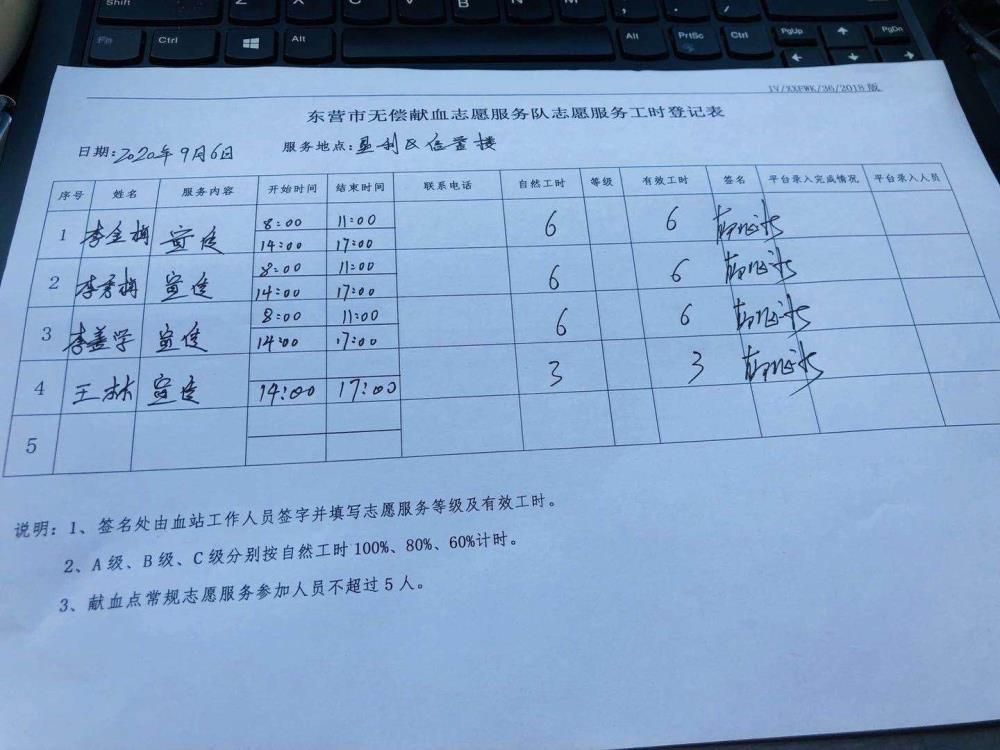 Shift
Fn Ctrl Alt Alt PrtSc Ctrl PgUp PgDn
IV/XXFWK/36/2018版
东营市无偿献血志愿服务队志愿服务工时登记表
日期:2020年9月6日 服务地点:垦利区信誉楼
序号 姓名 服务内容 开始时间 结束时间 联系电话 自然工时 等级 有效工时 签名 平台录入完成情况 平台录入人员
1 李金梅 宣传 8:00 11:00 6 6
14:00 17:00
2 李秀梅 宣传 8:00 11:00 6 6
14:00 17:00
3 李善学 宣传 8:00 11:00 6 6
14:00 17:00
4 王林 宣传 14:00 17:00 3 3
5
说明:1、签名处由血站工作人员签字并填写志愿服务等级及有效工时。
2、A级、B级、C级分别按自然工时100%、80%、60%计时。
3、献血点常规志愿服务参加人员不超过5人。